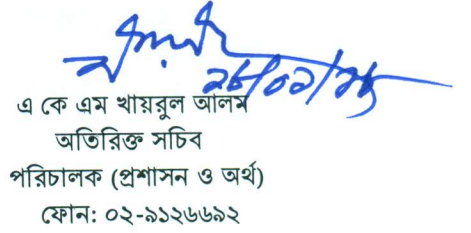 এ কে এম খায়রুল আলম
অতিরিক্ত সচিব
পরিচালক (প্রশাসন ও অর্থ)
ফোন: ০২-৯১২৬৬৯২